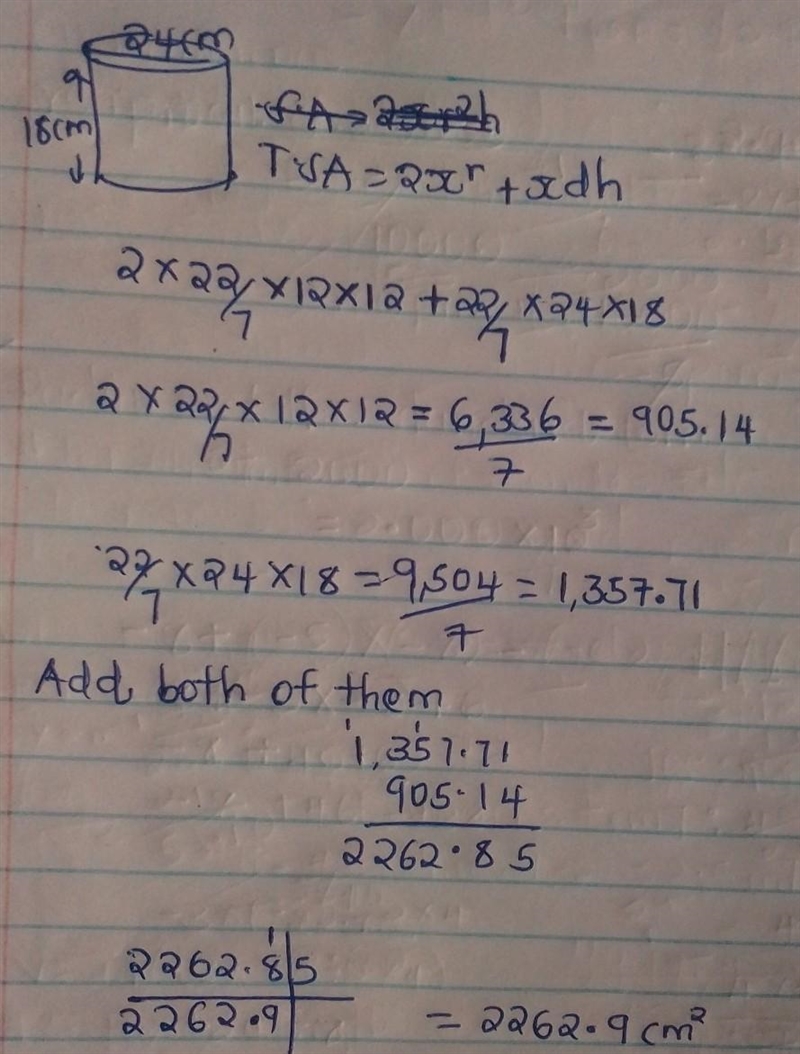 24cm
18cm
SA = 2πr²h
TSA = 2πr + πdh
2 × 22/7 × 12 × 12 + 22/7 × 24 × 18
2 × 22/7 × 12 × 12 = 6,336/7 = 905.14
22/7 × 24 × 18 = 9,504/7 = 1,357.71
Add both of them
1,357.71
905.14
2262.85
2262.8|5
2262.9 = 2262.9cm²